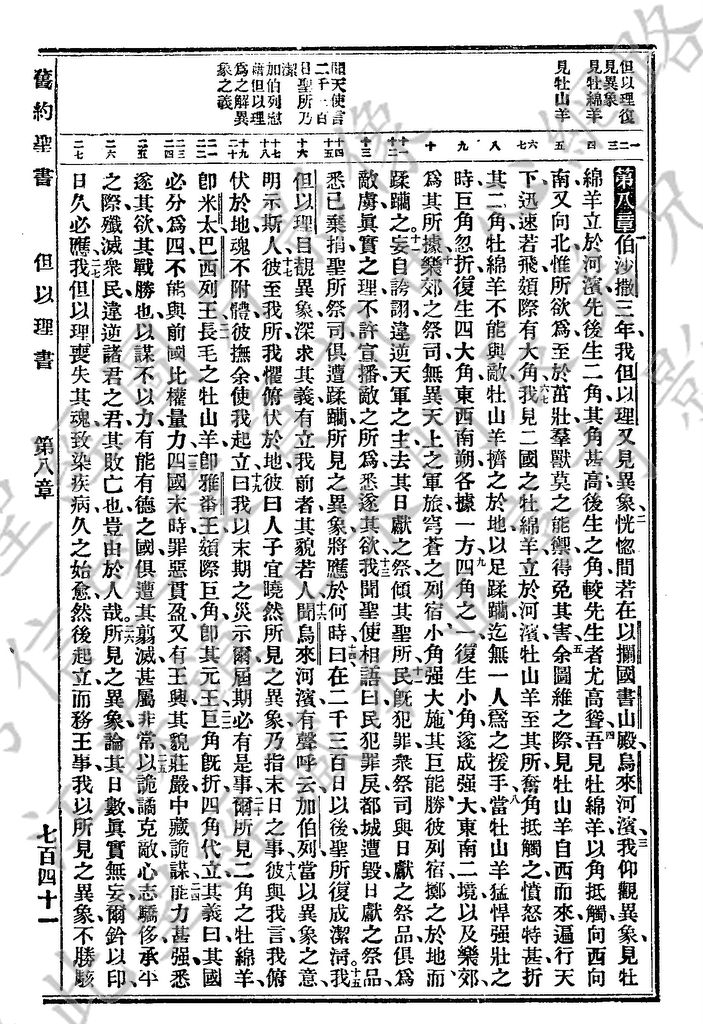 但以理復
見異象
見牡綿羊
見牡山羊
聞天使言
二千三百
日聖所乃
潔
加伯列慰
藉但以理
爲之解異
象之義
第八章伯沙撒三年我但以理又見異象恍惚間若在以攔國書山殿烏來河濱我仰觀異象見牡
綿羊立於河濱先後生二角其角甚高後生之角較先生者尤高聳吾見牡綿羊以角抵觸向西向
南又向北惟所欲爲至於茁壯羣獸莫之能禦得免其害余圖維之際見牡山羊自西而來遍行天
下迅速若飛頞際有大角我見二國之牡綿羊立於河濱牡山羊至其所奮角抵觸之憤怒特甚折
其二角牡綿羊不能與敵牡山羊擠之於地以足蹂躪迄無一人爲之援手當牡山羊猛悍强壯之
時巨角忽折復生四大角東西南朔各據一方四角之一復生小角遂成强大東南二境以及樂郊
爲其所據樂郊之祭司無異天上之軍旅穹蒼之列宿小角强大施其巨能勝彼列宿擲之於地而
蹂躪之妄自誇詡違逆天軍之主去其日獻之祭傾其聖所民旣犯罪衆祭司與日獻之祭品俱爲
敵虜眞實之理不許宣播敵之所爲悉遂其欲我聞聖使相語曰民犯罪戾都城遭毀日獻之祭品
悉已棄捐聖所祭司俱遭蹂躪所見之異象將應於何時曰在二千三百日以後聖所復成潔淸我
但以理目覩異象深求其義有立我前者其貌若人聞烏來河濱有聲呼云加伯列當以異象之意
明示斯人彼至我所我懼俯伏於地彼曰人子宜曉然所見之異象乃指末日之事彼與我言我俯
伏於地魂不附體彼撫余使我起立曰我以末期之災示爾屆期必有是事爾所見二角之牡綿羊
卽米太巴西列王長毛之牡山羊卽雅番王頞際巨角卽其元王巨角旣折四角代立其義曰其國
必分爲四不能與前國比權量力四國末時罪惡貫盈又有王興其貌莊嚴中藏詭謀能力甚强悉
遂其欲其戰勝也以謀不以力有能有德之國俱遭其翦滅甚屬非常以詭譎克敵心志驕侈承平
之際殲滅衆民違逆諸君之君其敗亡也豈由於人哉所見之異象論其日數眞實無妄爾鈐以印
日久必應我但以理喪失其魂致染疾病久之始愈然後起立而務王事我以所見之異象不勝駭
舊約聖書 但以理書 第八章 七百四十一